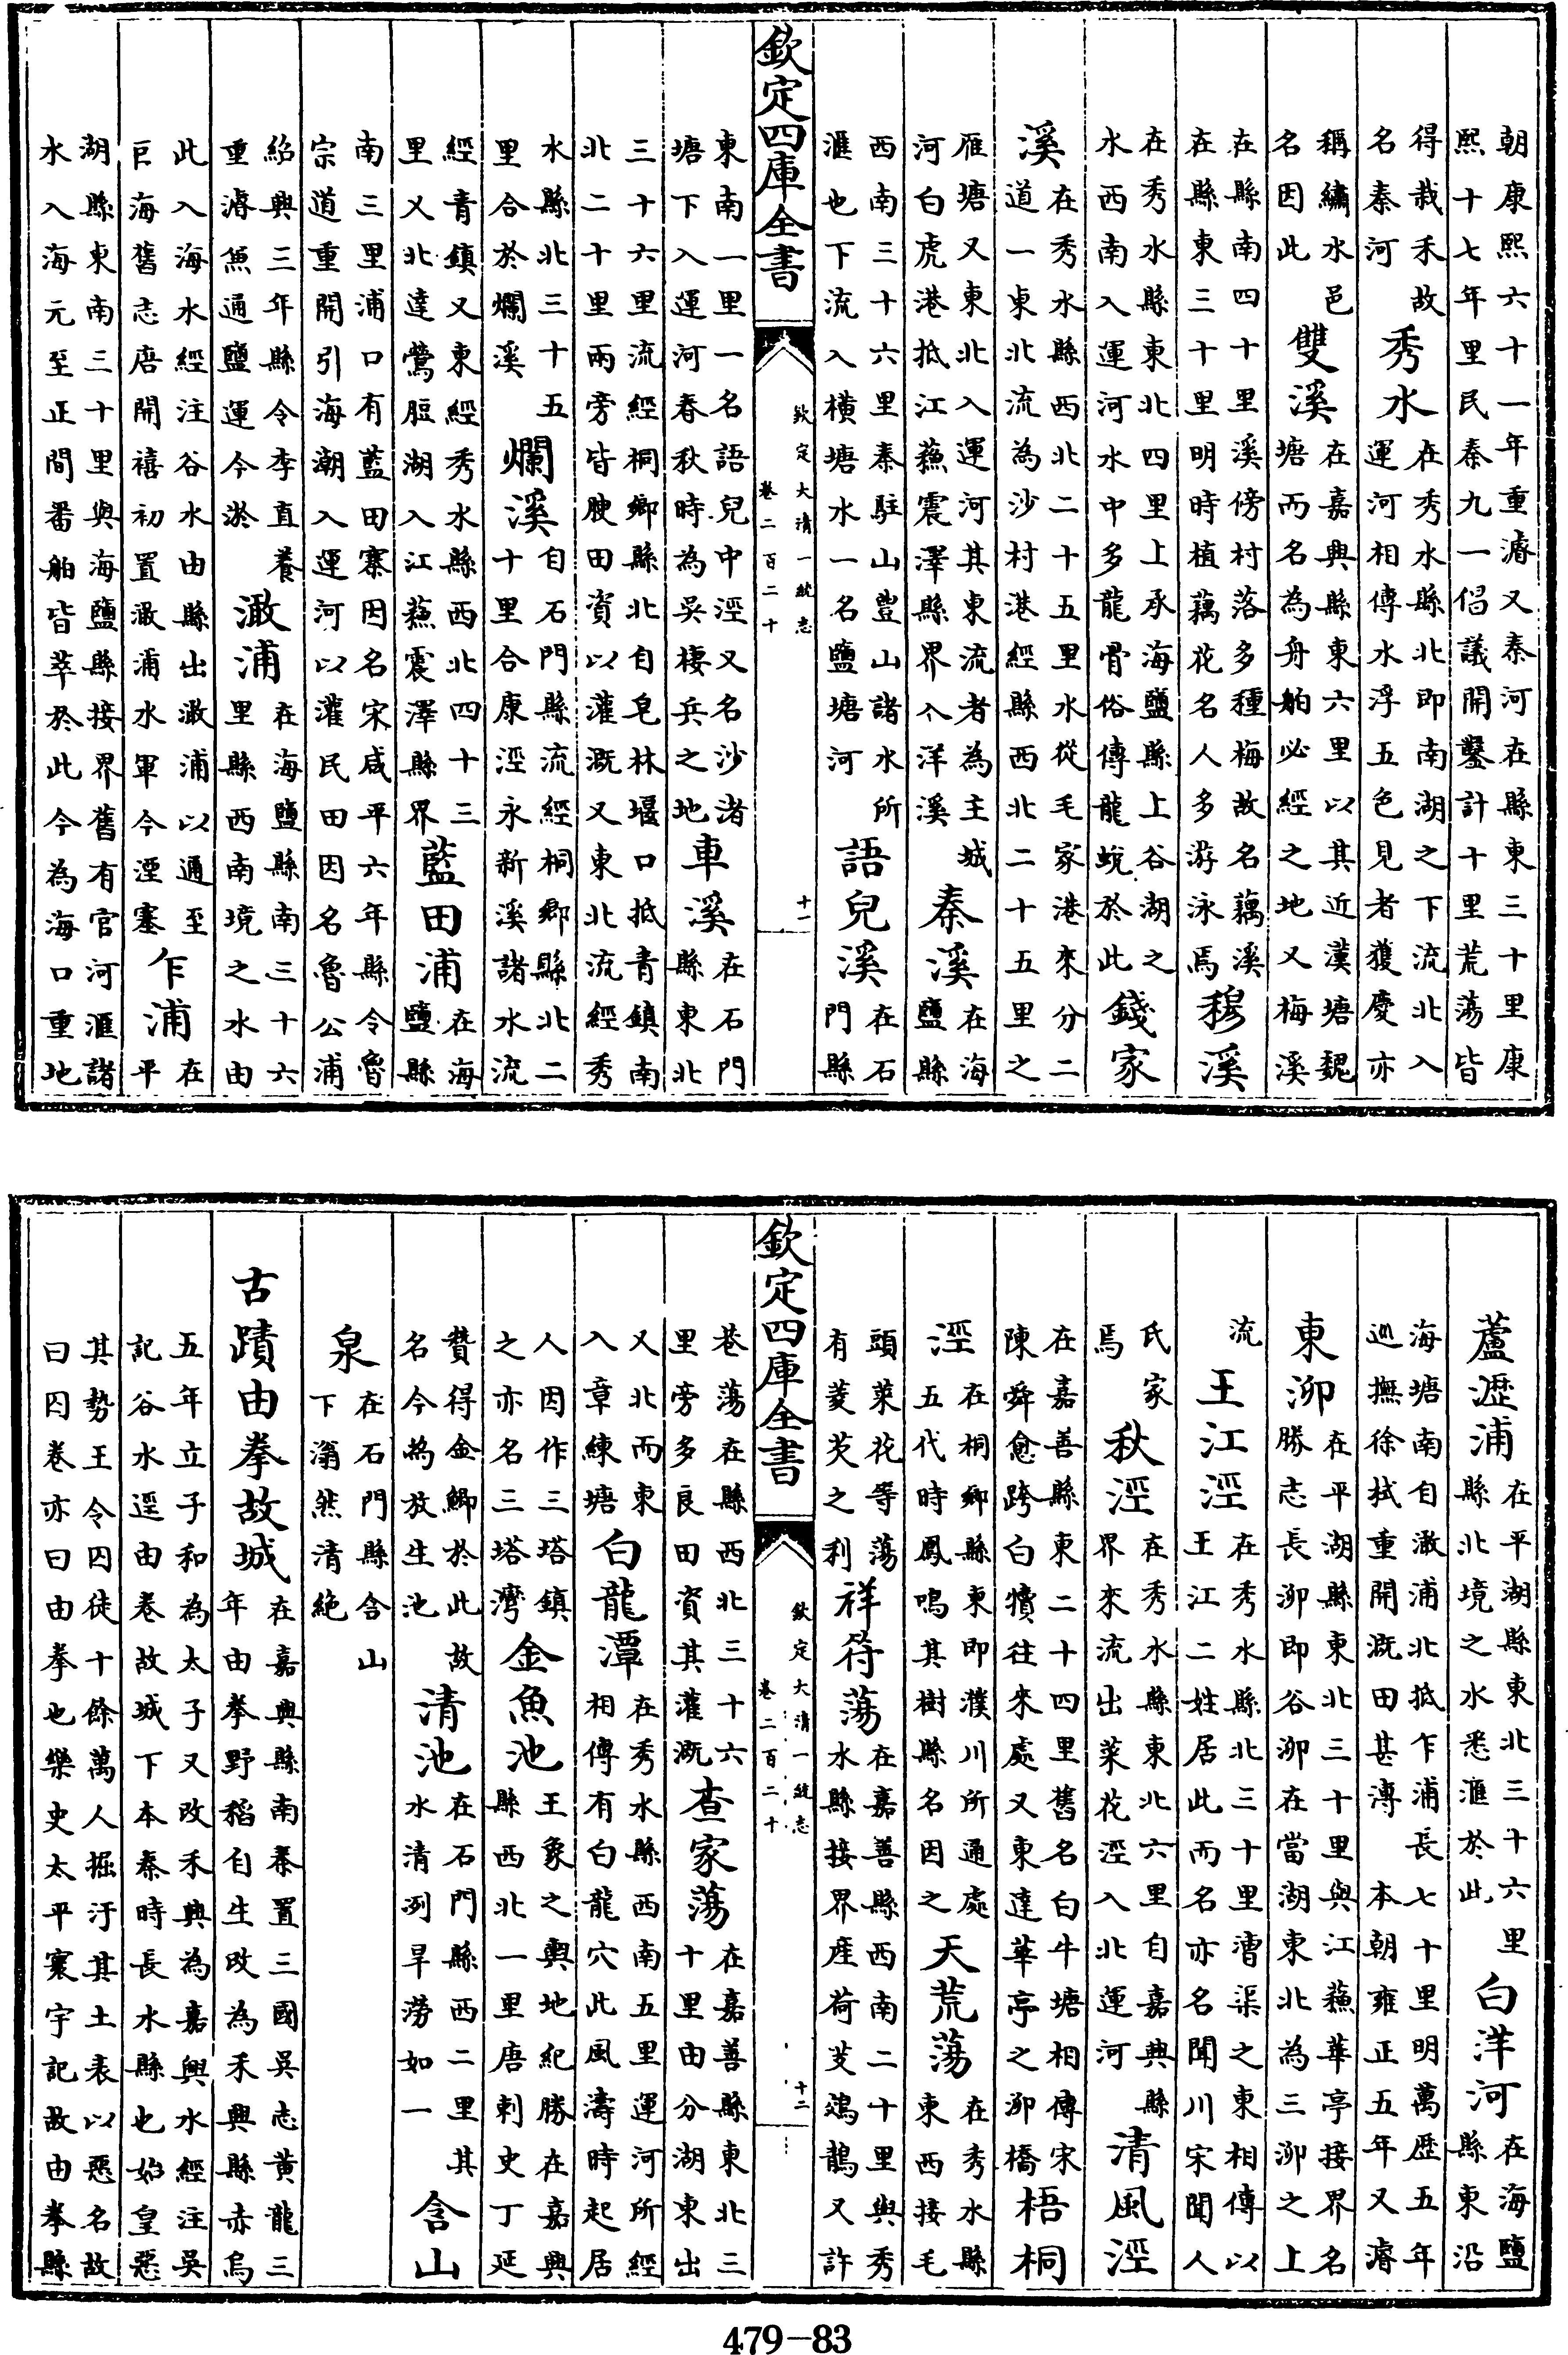 朝康熙六十一年重濬又秦河在縣東三十里康
熙十七年里民秦九一倡議開鑿計十里荒蕩皆
得栽禾故
名秦河
秀水
在秀水縣北即南湖之下流北入
運河相傳水浮五色見者獲慶亦
稱繡水邑
名因此
雙溪
在嘉興縣東六里以其近漢塘魏
塘而名為舟舶必經之地又梅溪
在縣南四十里溪傍村落多種梅故名藕溪
在縣東三十里明時植藕花名人多游泳焉
穆溪
在秀水縣東北四里上承海鹽縣上谷湖之
水西南入運河水中多龍骨俗傳龍蛻於此
錢家
溪
在秀水縣西北二十五里水從毛家港來分二
道一東北流為沙村港經縣西北二十五里之
雁塘又東北入運河其東流者為主城
河白虎港抵江蘇震澤縣界入洋溪
秦溪
在海
鹽縣
西南三十六里秦駐山豐山諸水所
滙也下流入橫塘水一名鹽塘河
語兒溪
在石
門縣
欽定四庫全書
欽定大清一統志
卷二百二十
十一
東南一里一名語兒中涇又名沙渚
塘下入運河春秋時為吳棲兵之地
車溪
在石門
縣東北
三十六里流經桐鄉縣北自皂林堰口抵青鎮南
北二十里兩旁皆腴田資以灌溉又東北流經秀
水縣北三十五
里合於爛溪
爛溪
自石門縣流經桐鄉縣北二
十里合康涇永新溪諸水流
經青鎮又東經秀水縣西北四十三
里又北達鶯脰湖入江蘇震澤縣界
藍田浦
在海
鹽縣
南三里浦口有藍田寨因名宋咸平六年縣令魯
宗道重開引海潮入運河以灌民田因名魯公浦
紹興三年縣令李直養
重濬無通鹽運今淤
澉浦
在海鹽縣南三十六
里縣西南境之水由
此入海水經注谷水由縣出澉浦以通至
巨海舊志唐開禧初置澉浦水軍今湮塞
乍浦
在
平
湖縣東南三十里與海鹽縣接界舊有官河滙諸
水入海元至正間番舶皆萃於此今為海口重地
蘆瀝浦
在平湖縣東北三十六里
縣北境之水悉滙於此
白洋河
在海鹽
縣東沿
海塘南自澉浦北抵乍浦長七十里明萬歷五年
巡撫徐栻重開溉田甚溥本朝雍正五年又濬
東泖
在平湖縣東北三十里與江蘇華亭接界名
勝志長泖即谷泖在當湖東北為三泖之上
流
王江涇
在秀水縣北三十里漕渠之東相傳以
王江二姓居此而名亦名聞川宋聞人
氏家
焉
秋涇
在秀水縣東北六里自嘉興縣
界來流出菜花涇入北運河
清風涇
在嘉善縣東二十四里舊名白牛塘相傳宋
陳舜愈跨白犢往來處又東達華亭之泖橋
梧桐
涇
在桐鄉縣東即濮川所通處
五代時鳳鳴其樹縣名因之
天荒蕩
在秀水縣
東西接毛
頭菜花等蕩
有菱芡之利
祥符蕩
在嘉善縣西南二十里與秀
水縣接界產荷芰鴻鶄又許
欽定四庫全書
欽定大清一統志
卷二百二十
十二
巷蕩在縣西北三十六
里旁多良田資其灌溉
查家蕩
在嘉善縣東北三
十里由分湖東出
又北而東
入章練塘
白龍潭
在秀水縣西南五里運河所經
相傳有白龍穴此風濤時起居
人因作三塔鎮
之亦名三塔灣
金魚池
王象之輿地紀勝在嘉興
縣西北一里唐刺史丁延
贊得金鯽於此故
名今為放生池
清池
在石門縣西二里其
水清冽旱澇如一
含山
泉
在石門縣含山
下瀹然清絕
古蹟
由拳故城
在嘉興縣南秦置三國吳志黃龍三
年由拳野稻自生改為禾興縣赤烏
五年立子和為太子又改禾興為嘉興水經注吳
記谷水逕由卷故城下本秦時長水縣也始皇惡
其勢王令囚徒十餘萬人掘汙其土表以惡名故
曰囚卷亦曰由拳也樂史太平寰宇記故由拳縣
479-83